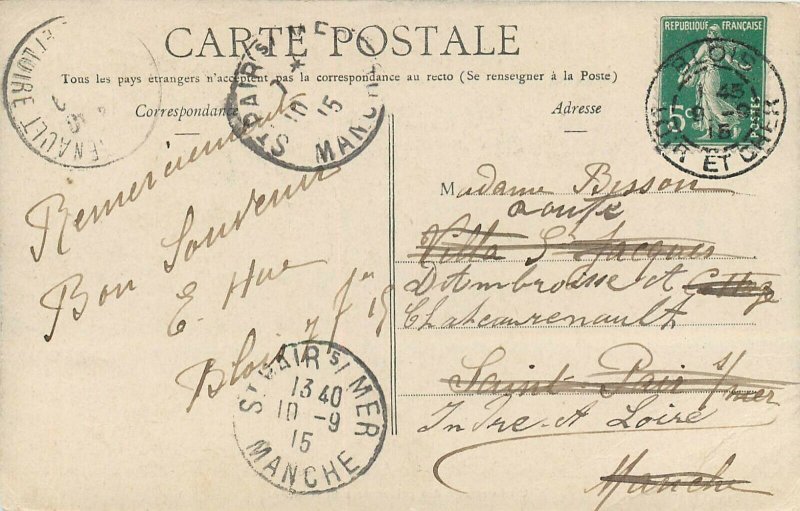 CARTE POSTALE
Tous les pays étrangers n'acceptent pas la correspondance au recto (Se renseigner à la Poste)
Correspondance
Adresse
REPUBLIQUE FRANÇAISE
5
POSTES
BLOIS
45
9 -9
15
LOIR ET CHER
RENAULT
ET LOIRE
ST PAIR S/ MER
10
15
MANCHE
Remerciements
Bon Souvenir
E. Hue
Blois 7 15
ST PAIR S/ MER
13 40
10 -9
15
MANCHE
Madame Besson
Villa St Jacques
D'Ambroisse et Cottage
Chateaurenault
Saint-Pair s/mer
Indre et Loire
Manche